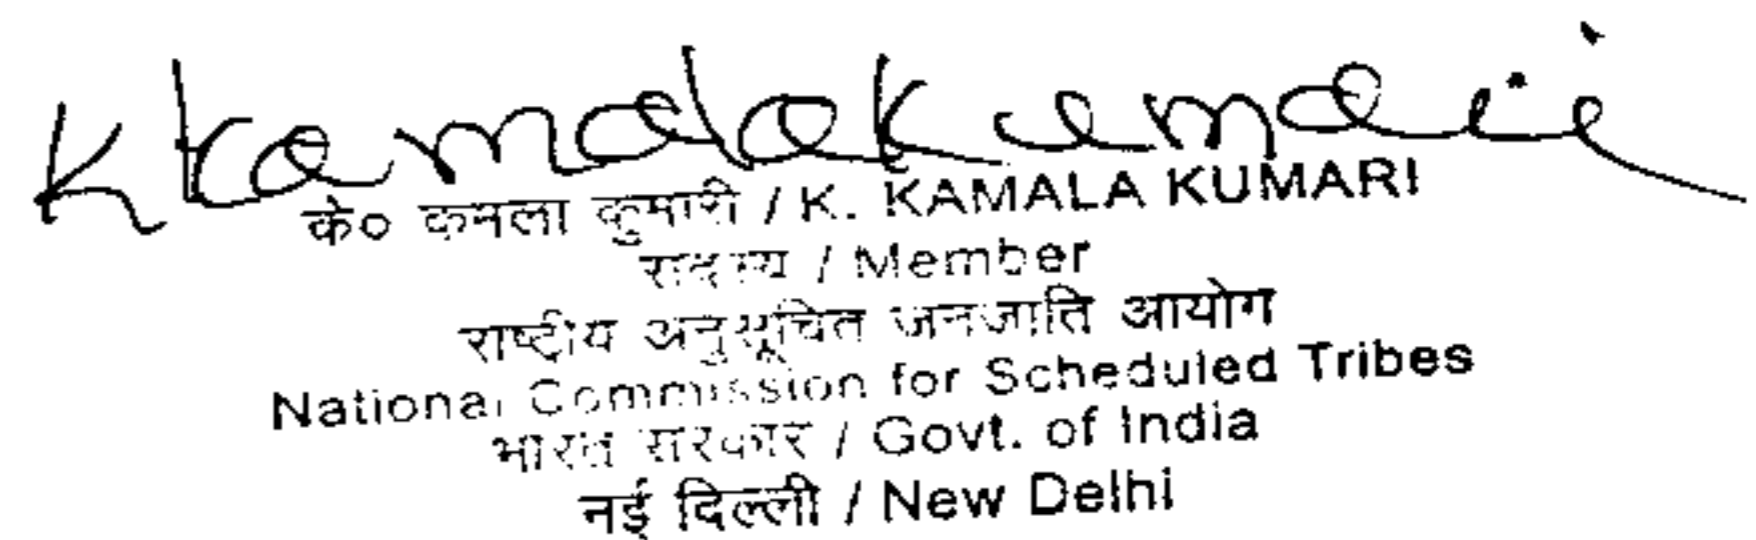 K Kamala Kumari
के० कमला कुमारी / K. KAMALA KUMARI
सदस्य / Member
राष्ट्रीय अनुसूचित जनजाति आयोग
National Commission for Scheduled Tribes
भारत सरकार / Govt. of India
नई दिल्ली / New Delhi